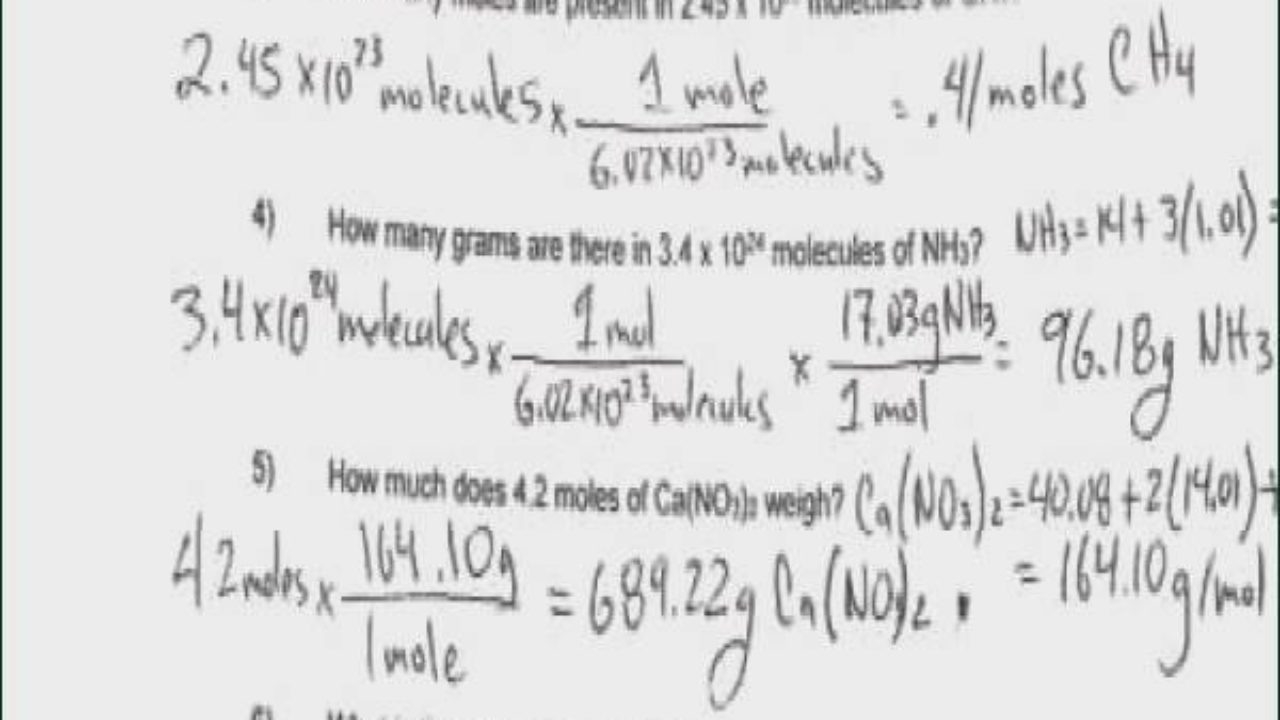 are present in 2.45 x 10 molecules of
2.45 x10²³ molecules x 1 mole / 6.02x10²³ molecules = .41 moles CH4
4) How many grams are there in 3.4 x 10²⁴ molecules of NH₃? NH3 = 14 + 3(1.01) =
3.4x10²⁴ molecules x 1 mol / 6.02x10²³ molecules x 17.03g NH3 / 1 mol = 96.18g NH3
5) How much does 4.2 moles of Ca(NO₃)₂ weigh? Ca(NO3)2 = 40.08 + 2(14.01) +
4.2 moles x 164.10g / 1 mole = 689.22g Ca(NO3)2 . = 164.10g/mol
6)